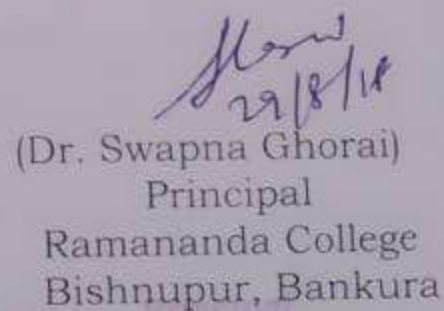 29/8/18
(Dr. Swapna Ghorai)
Principal
Ramananda College
Bishnupur, Bankura